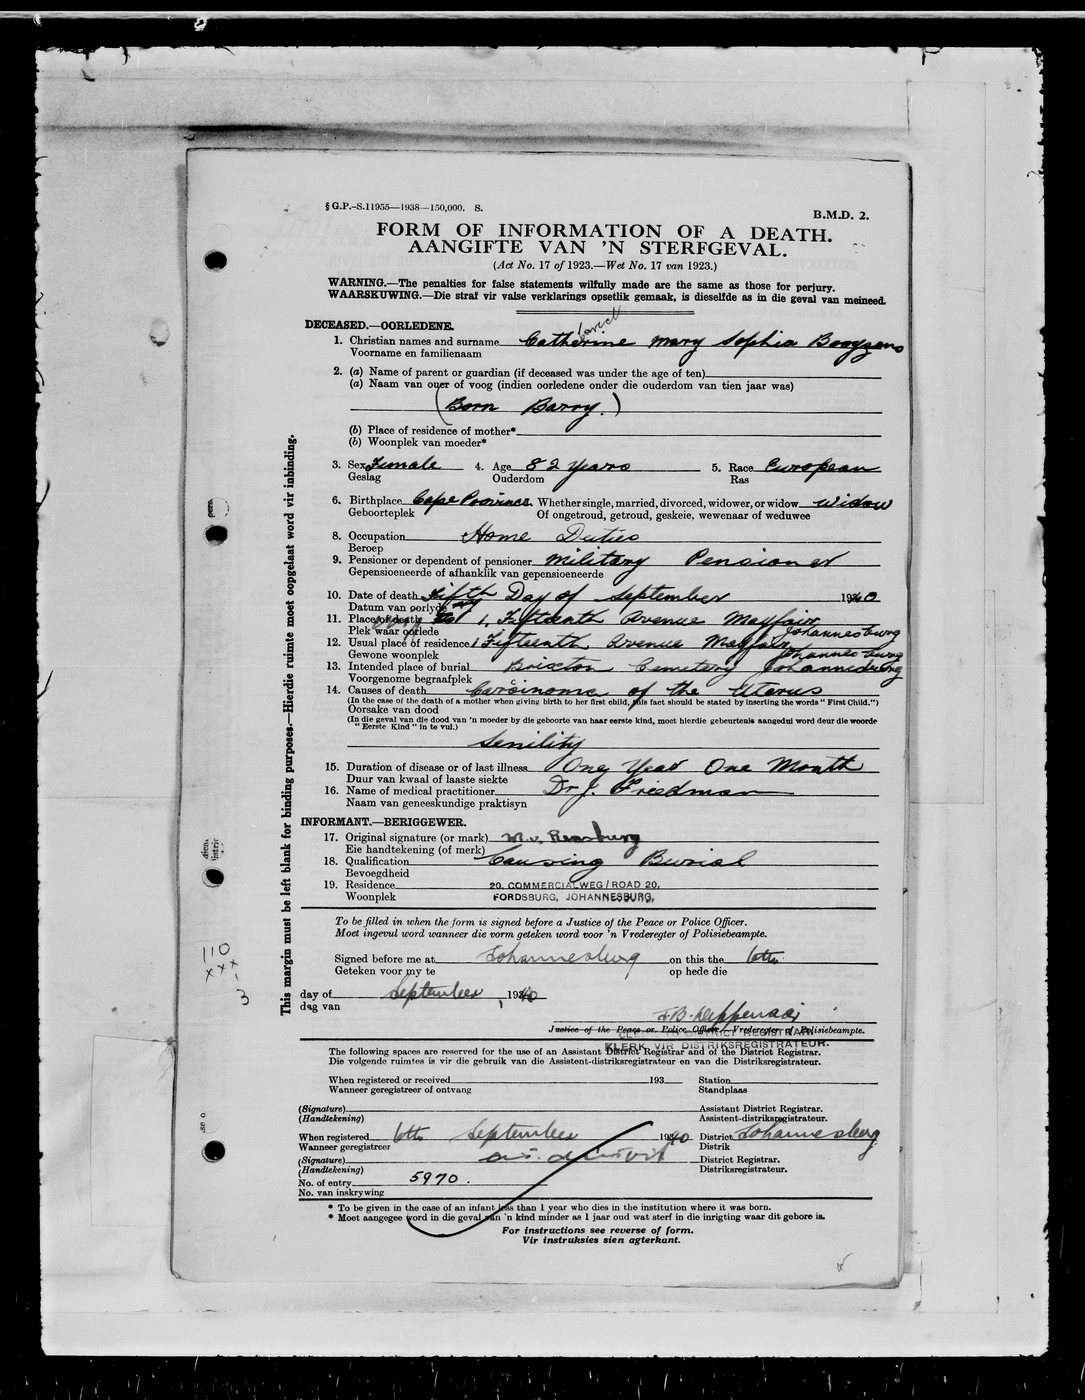 § G.P.-S.11955—1938—150,000. S.
B.M.D. 2.
FORM OF INFORMATION OF A DEATH.
AANGIFTE VAN 'N STERFGEVAL.
(Act No. 17 of 1923.—Wet No. 17 van 1923.)
WARNING.—The penalties for false statements wilfully made are the same as those for perjury.
WAARSKUWING.—Die straf vir valse verklarings opsetlik gemaak, is dieselfde as in die geval van meineed.
DECEASED.—OORLEDENE.
1. Christian names and surname Catherine Mary Sophia Booyzens
Voornaam en familienaam
2. (a) Name of parent or guardian (if deceased was under the age of ten)
(a) Naam van ouer of voog (indien oorledene onder die ouderdom van tien jaar was)
(Born Barry.)
(b) Place of residence of mother*
(b) Woonplek van moeder*
3. Sex Female 4. Age 82 Years 5. Race European
Geslag Ouderdom Ras
6. Birthplace Cape Province Whether single, married, divorced, widower, or widow Widow
Geboorteplek Of ongetroud, getroud, geskeie, wewenaar of weduwee
8. Occupation Home Duties
Beroep
9. Pensioner or dependent of pensioner Military Pensioner
Gepensioeneerde of afhanklik van gepensioeneerde
10. Date of death Fifth Day of September 1940
Datum van oorlyde
11. Place of death 1, Fifteenth Avenue Mayfair, Johannesburg
Plek waar oorlede
12. Usual place of residence 1 Fifteenth Avenue Mayfair Johannesburg
Gewone woonplek
13. Intended place of burial Brixton Cemetery Johannesburg
Voorgenome begraafplek
14. Causes of death Carcinoma of the Uterus
(In the case of the death of a mother when giving birth to her first child, this fact should be stated by inserting the words " First Child.")
Oorsake van dood
(In die geval van die dood van 'n moeder by die geboorte van haar eerste kind, moet hierdie gebeurtenis aangedui word deur die woorde
" Eerste Kind " in te vul.)
Senility
15. Duration of disease or of last illness One Year One Month
Duur van kwaal of laaste siekte
16. Name of medical practitioner Dr J. Freedman
Naam van geneeskundige praktisyn
INFORMANT.—BERIGGEWER.
17. Original signature (or mark) M. v. Rensburg
Eie handtekening (of merk)
18. Qualification Causing Burial
Bevoegdheid
19. Residence 20, COMMERCIALWEG/ROAD 20,
Woonplek FORDSBURG, JOHANNESBURG,
To be filled in when the form is signed before a Justice of the Peace or Police Officer.
Moet ingevul word wanneer die vorm geteken word voor 'n Vrederegter of Polisiebeampte.
Signed before me at Johannesburg on this the 6th
Geteken voor my te op hede die
day of September, 1940
dag van
Justice of the Peace or Police Officer. Vrederegter of Polisiebeampte.
KLERK VIR DISTRIKSREGISTRATEUR.
The following spaces are reserved for the use of an Assistant District Registrar and of the District Registrar.
Die volgende ruimtes is vir die gebruik van die Assistent-distriksregistrateur en van die Distriksregistrateur.
When registered or received 193 Station
Wanneer geregistreer of ontvang Standplaas
(Signature) Assistant District Registrar.
(Handtekening) Assistent-distriksregistrateur.
When registered 6th September 1940 District Johannesburg
Wanneer geregistreer Distrik
(Signature) District Registrar.
(Handtekening) Distriksregistrateur.
No. of entry 5970.
No. van inskrywing
* To be given in the case of an infant less than 1 year who dies in the institution where it was born.
* Moet aangegee word in die geval van 'n kind minder as 1 jaar oud wat sterf in die inrigting waar dit gebore is.
For instructions see reverse of form.
Vir instruksies sien agterkant.
This margin must be left blank for binding purposes.—Hierdie ruimte moet oopgelaat word vir inbinding.
110
xxx
3